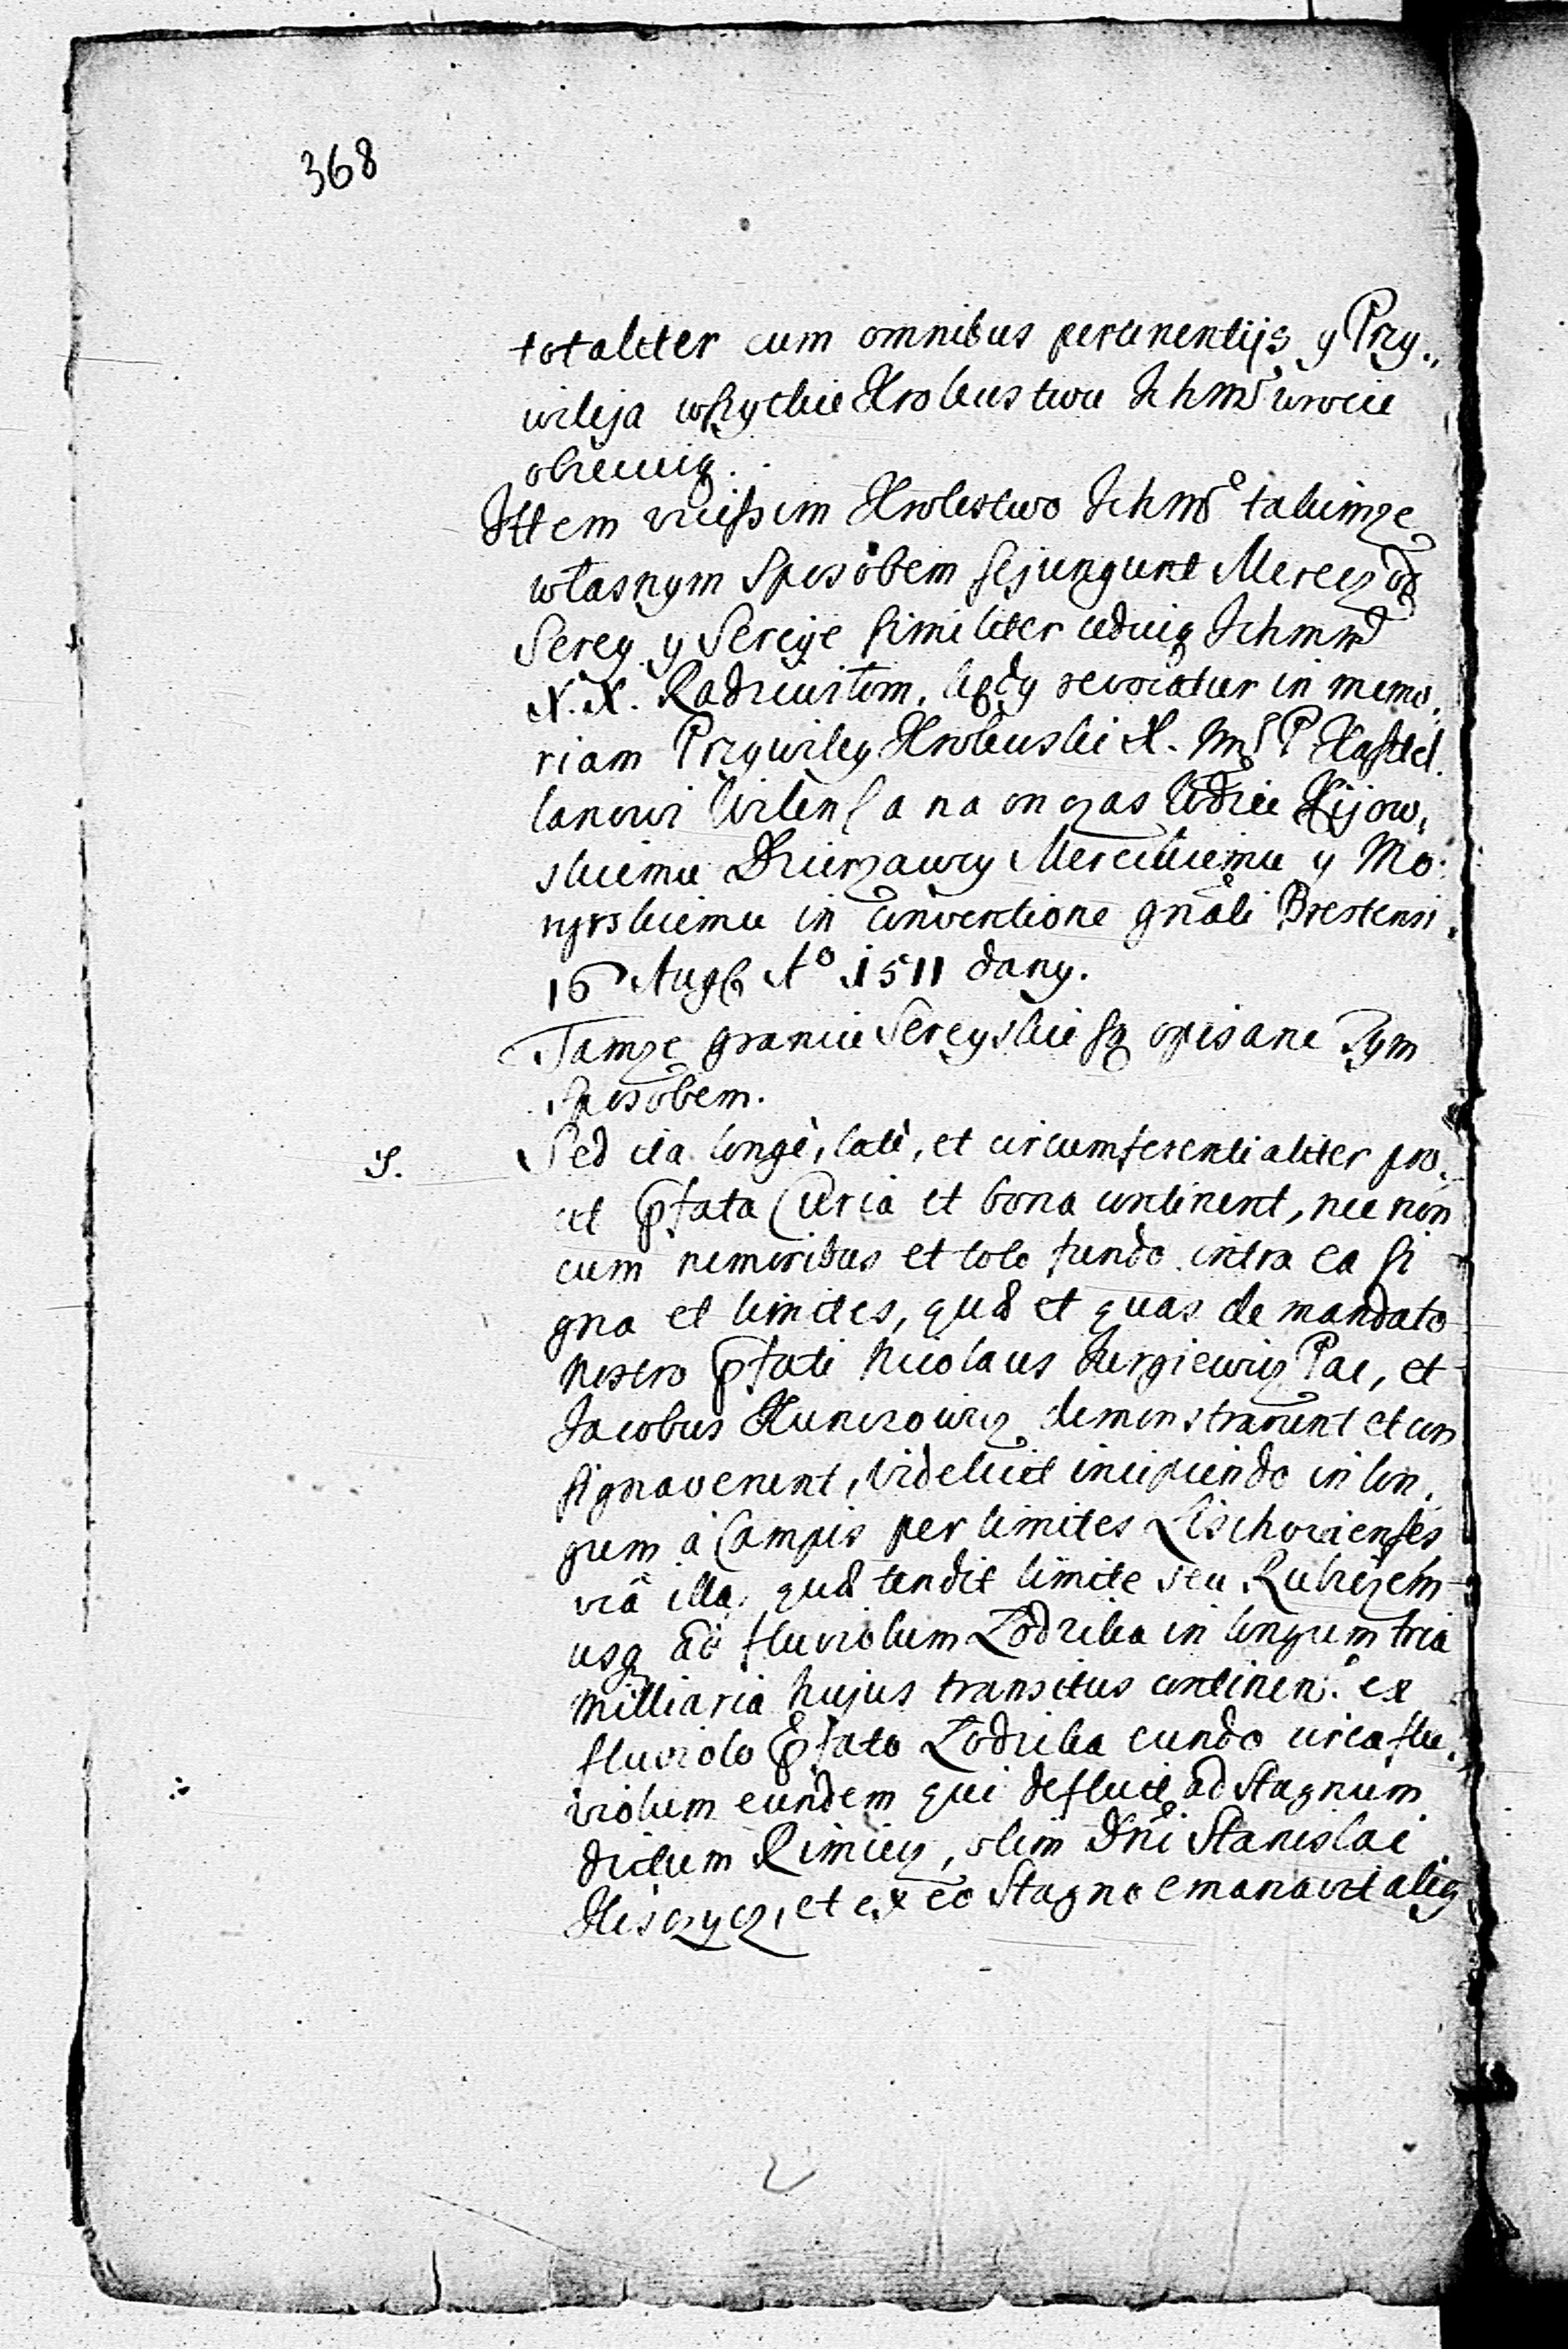 368
totaliter cum omnibus pertinentijs y Przy„
wileja wszytkie Krolewstwu Ichmć wrocić
obiecuią.
Ittem vicissim Krolestwo Ichmć takimże
własnym sposobem sejungunt Merecz od
Serey y Sereje similiter ceduią Ichmm
X. X. Radziwiłłom, kędy revocatur in memo„
riam Przywiley Krolewski X. Imć P Kasztel„
lanowi Wilen: a na on czas Wdzie Kijow„
skiemu Dzierżawcy Mereckiemu y Mo„
zyrskiemu in conventione gnali Brestensi
16 Augti A° 1511 dany.
Tamże granice Sereyskie są opisane Tym
sposobem.
S. Sed ita longè, latè, et circumferentialiter pro„
ut pfata Curia et bona continent, nec non
cum nemoribus et toto fundo intra ea si
gna et limites, quæ et quas de mandato
nostro pfati Nicolaus Jurgiewicz Pac, et
Jacobus Kuncowicz demonstrarunt et con
signaverunt, videlicet incipiendo in lon„
gum à Campis per limites Lischovienses
viâ illa, quæ tendit limite seu Rubieżem
usq ad fluviolum Zodzilka in longum tria
milliaria hujus transitus continen: ex
fluviolo pfato Zodzilka eundo circa flu„
violum eundem qui defluit ad Stagnum
dictum Rimiecz, olim Dni Stanislai
Hlisczycz, et ex eo Stagno emanavit aliq